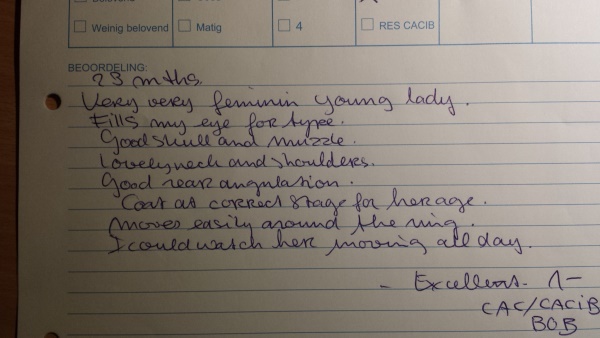 Weinig belovend Matig 4 RES CACIB
BEOORDELING:
23 mths.
Very very feminin young lady.
Fills my eye for type.
Good skull and muzzle.
Lovely neck and shoulders.
Good rear angulation.
Coat at correct stage for her age.
Moves easily around the ring.
I could watch her moving all day.
- Excellent. 1-
CAC/CACiB
BOB